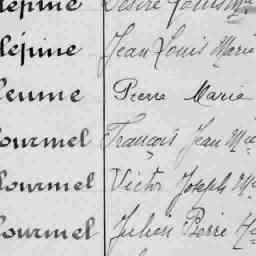 lépine Désiré Louis Mie
lépine Jean Louis Marie
leume Pierre Marie
lourmel François Jean Mie
lourmel Victor Joseph
lourmel Julien Pierre